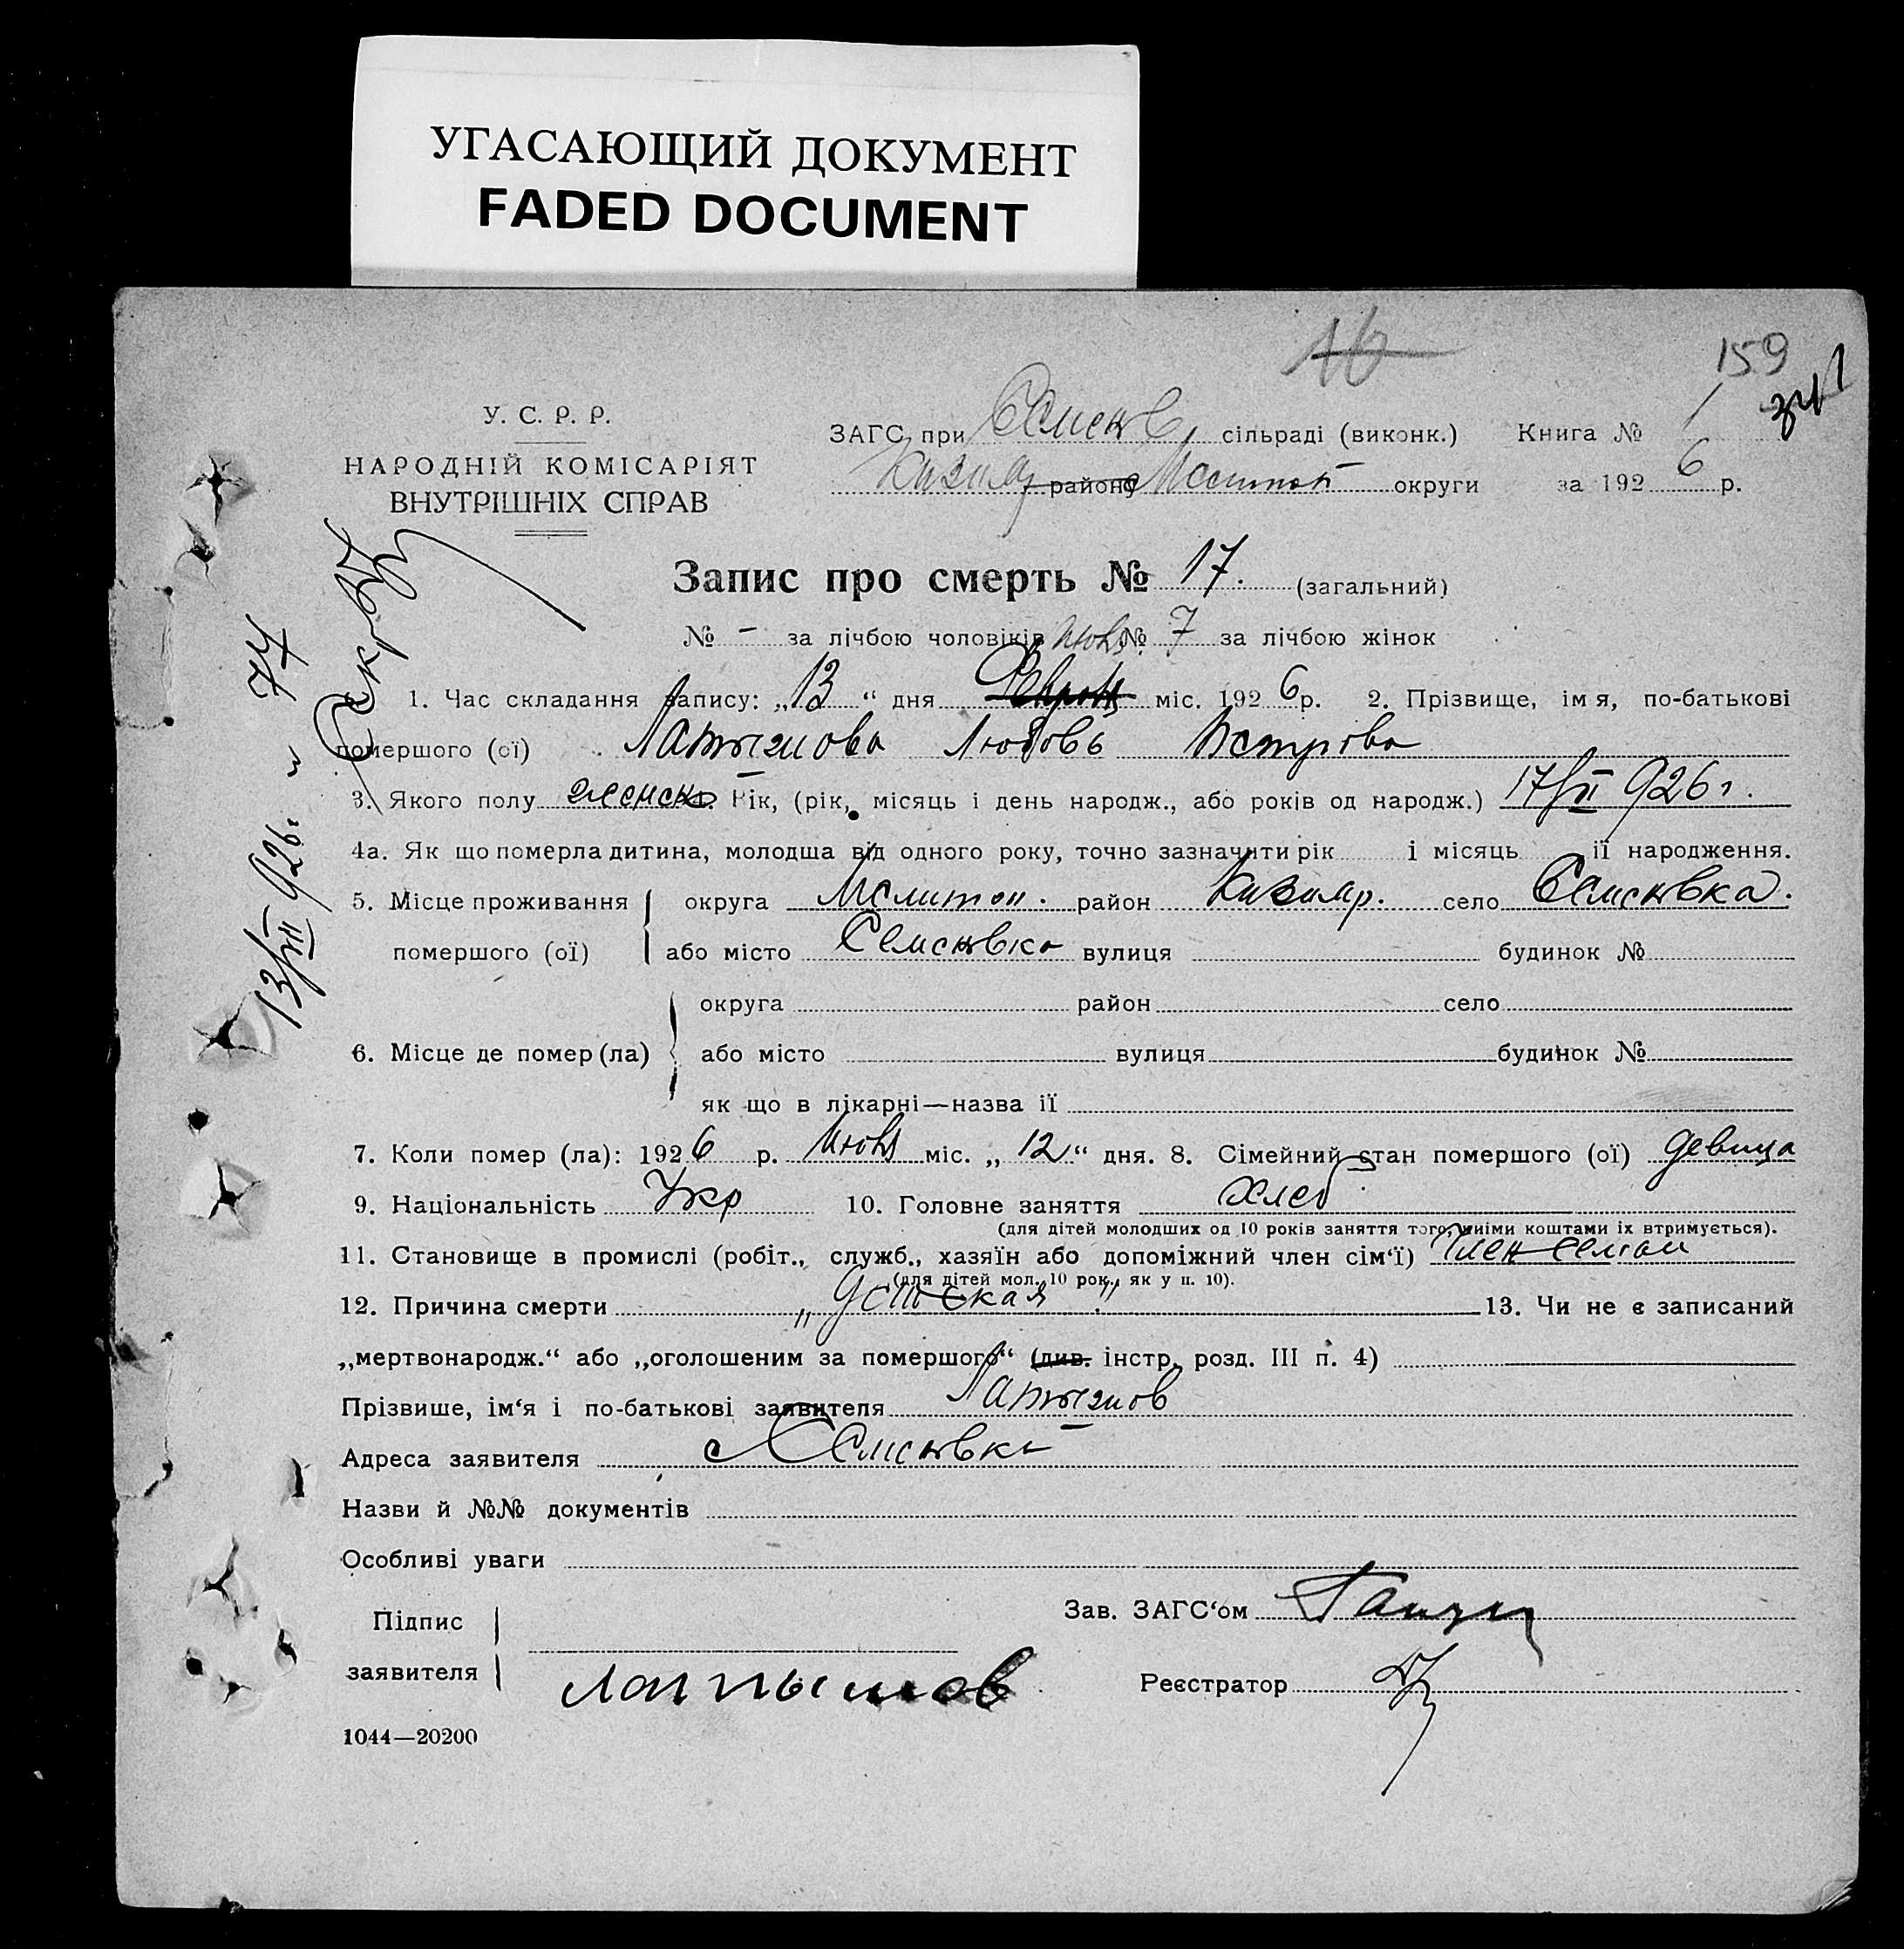 УГАСАЮЩИЙ ДОКУМЕНТ
FADED DOCUMENT
16
159
У. С. Р. Р.
НАРОДНІЙ КОМІСАРІЯТ
ВНУТРІШНІХ СПРАВ
ЗАГС при Семенов сільраді (виконк.) Книга №
району округи за 1926 р.
Запис про смерть № 17. (загальний)
№ - за лічбою чоловіків Июнь № 7 за лічбою жінок
1. Час складання запису: „13“ дня міс. 1926 р. 2. Прізвище, імя, по-батькові
помершого (ої) Латышова Любовь Петрова
3. Якого полу женск. Рік, (рік, місяць і день народж., або років од народж.) 17/II 926 г.
4а. Як що померла дитина, молодша від одного року, точно зазначити рік і місяць її народження.
5. Місце проживання округа Мелитоп. район Кизияр. село Семеновка.
помершого (ої) або місто Семеновка вулиця будинок №
округа район село
6. Місце де помер (ла) або місто вулиця будинок №
як що в лікарні—назва її
7. Коли помер (ла): 1926 р. Июнь міс. „12“ дня. 8. Сімейний стан помершого (ої) девица
9. Національність Укр 10. Головне заняття хлеб.
(для дітей молодших од 10 років заняття того, чиїми коштами їх втримується).
11. Становище в промислі (робіт., служб., хазяїн або допоміжний член сім‘ї) член семьи
(для дітей мол. 10 рок., як у п. 10).
12. Причина смерти „Детская“ 13. Чи не є записаний
„мертвонародж.“ або „оголошеним за помершого“ (див. інстр. розд. III п. 4)
Прізвише, ім‘я і по-батькові заявителя Латышов
Адреса заявителя с Семеновка
Назви й №№ документів
Особливі уваги
Підпис
заявителя Латышов
Зав. ЗАГС‘ом
Реєстратор
1044—20200
13/VI 926 г. № 74